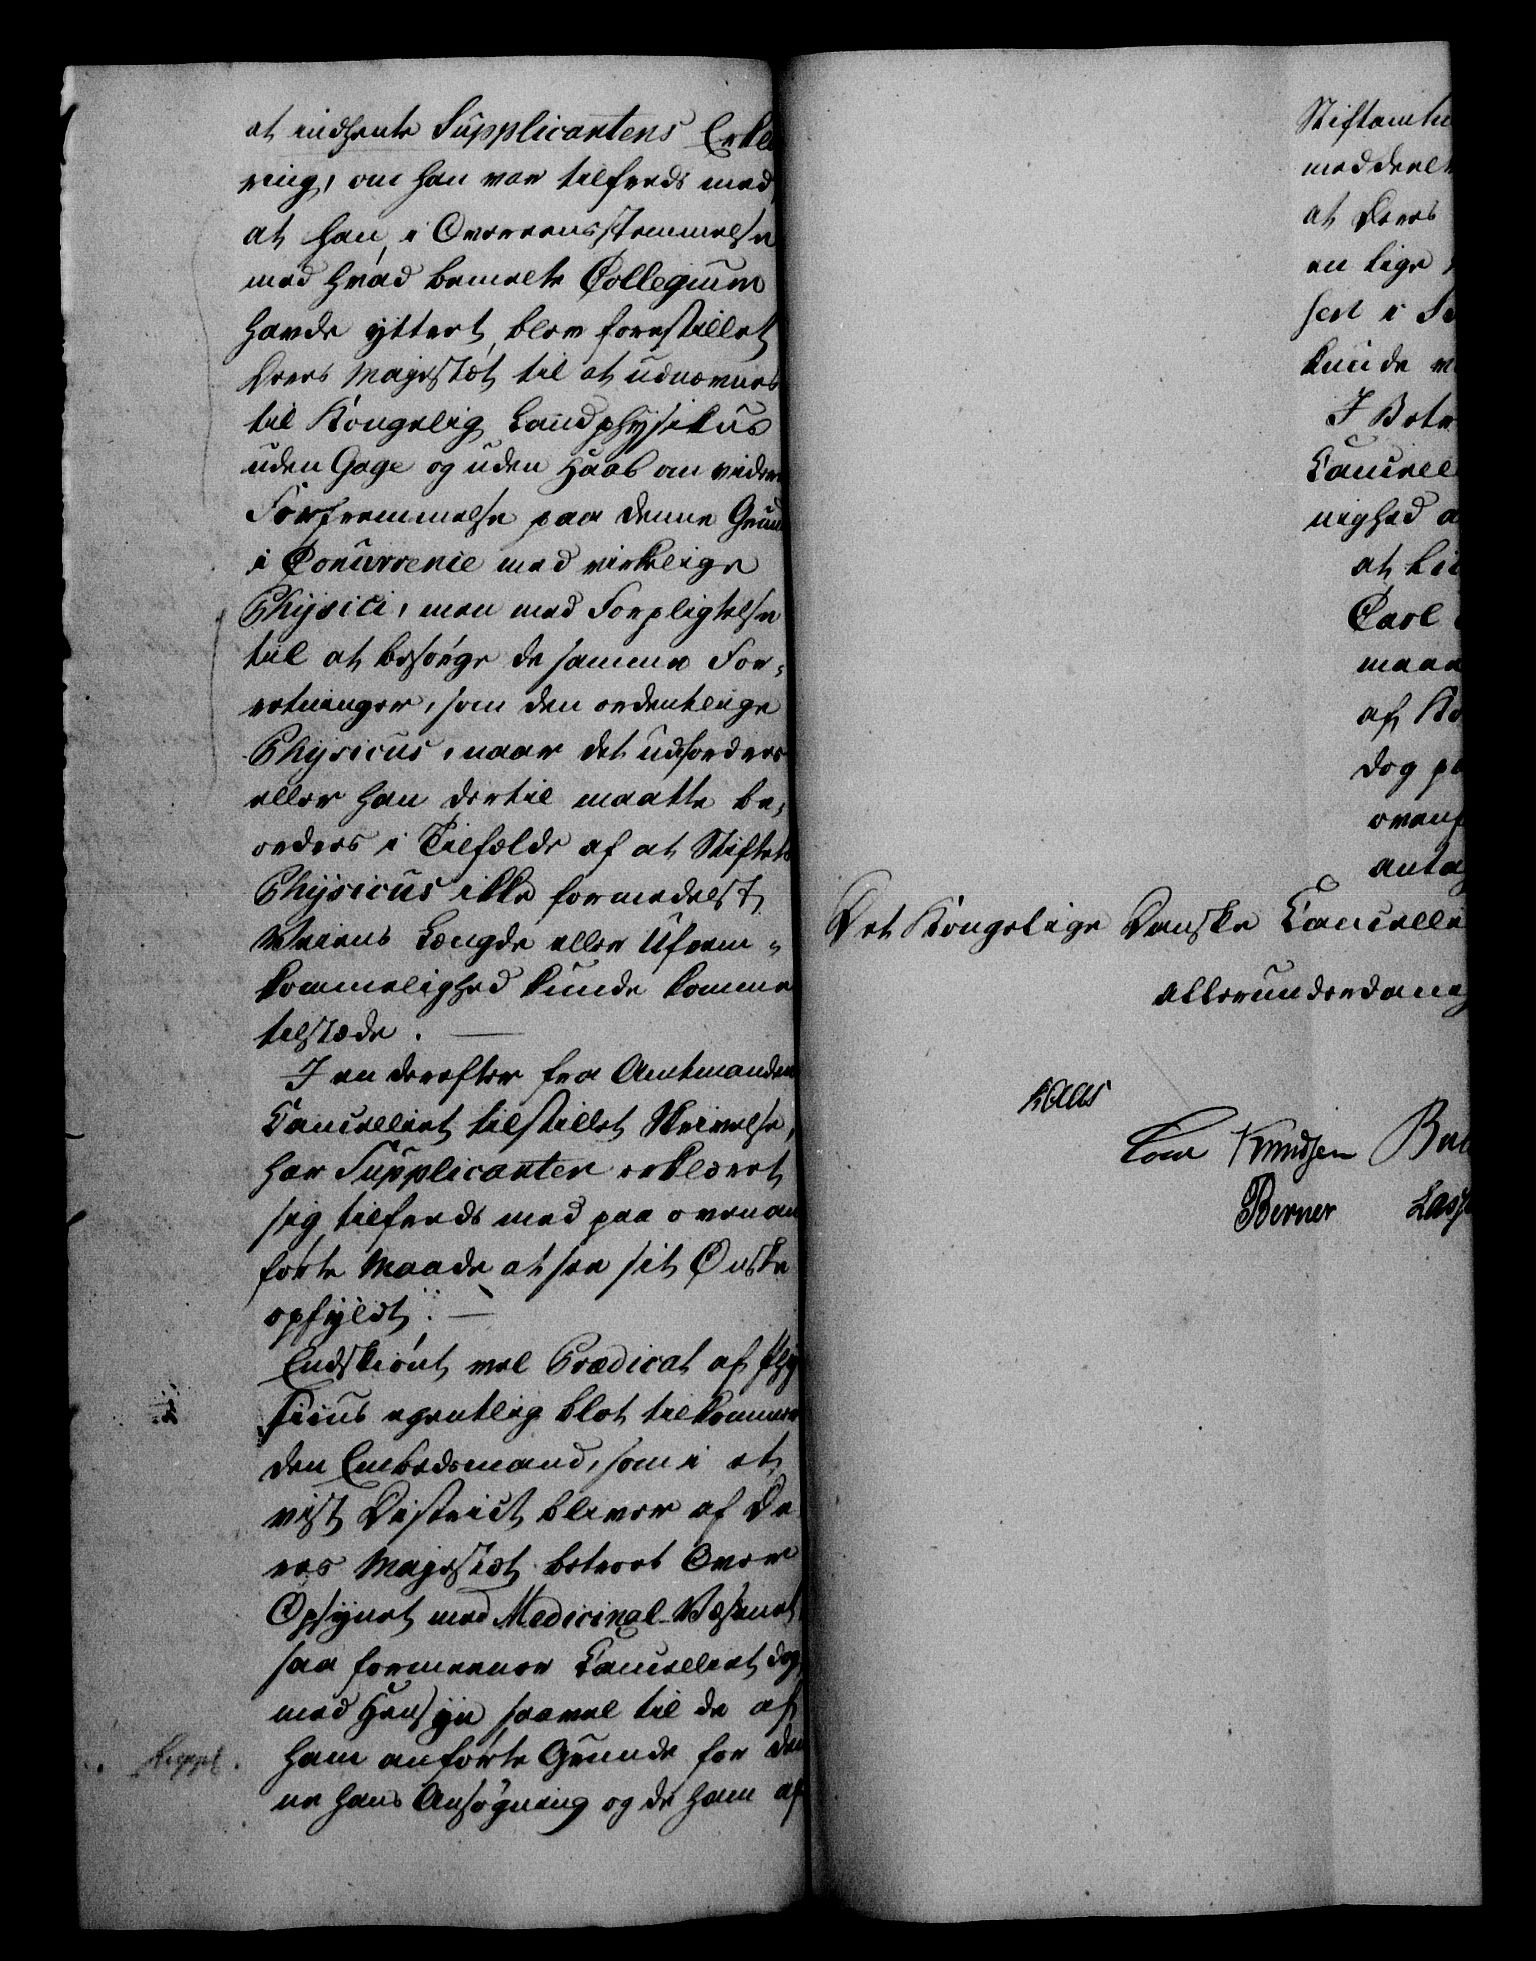 at indhente Supplicantens Erklæ
ring, om han var tilfreds med,
at han, i Overeensstemmelse
med hvad bemelte Collegium
havde yttert, blev forestillet
Deres Majestæt til at udnævnes
til Kongelig Landphysikus
uden Gage og uden Haab om videre
Forfremmelse paa denne Grund
i Concurrence med virkelige
Physici, men med Forpligtelse
til at besørge de samme For-
retninger, som den ordentlige
Physicus, naar det udfordres
eller han dertil maatte be-
ordres i Tilfælde af at Stiftets
Physicus ikke formedelst
Veiens Længde eller Ufrem-
kommelighed kunde komme
tilstæde. —
I en derefter fra Amtmanden
Cancelliet tilstillet Skrivelse,
har Supplicanten erklæret
sig tilfreds med paa ovenan
førte Maade at see sit Ønske
opfyldt. —
Endskiønt vel Prædicat af Phy
sicus egentlig blot tilkommer
den Embedsmand, som i et
vist District bliver af De
res Majestæt betroet Over
Opsynet med Medicinal-Væsenet,
saa formeener Cancelliet dog,
med Hensyn saavel til de af
ham anførte Grunde for den
ne hans Ansøgning og de ham af
Stiftamtm
meddeelt
at Deres
en lige
sert i
kunde
I Betr
Cancell
nighed a
at
Carl
maa
af Ko
dog p
ovenf
antag
Det Kongelige Danske Cancellie
allerunderdanig
Kaas
Cold Knudsen
Berner Lass